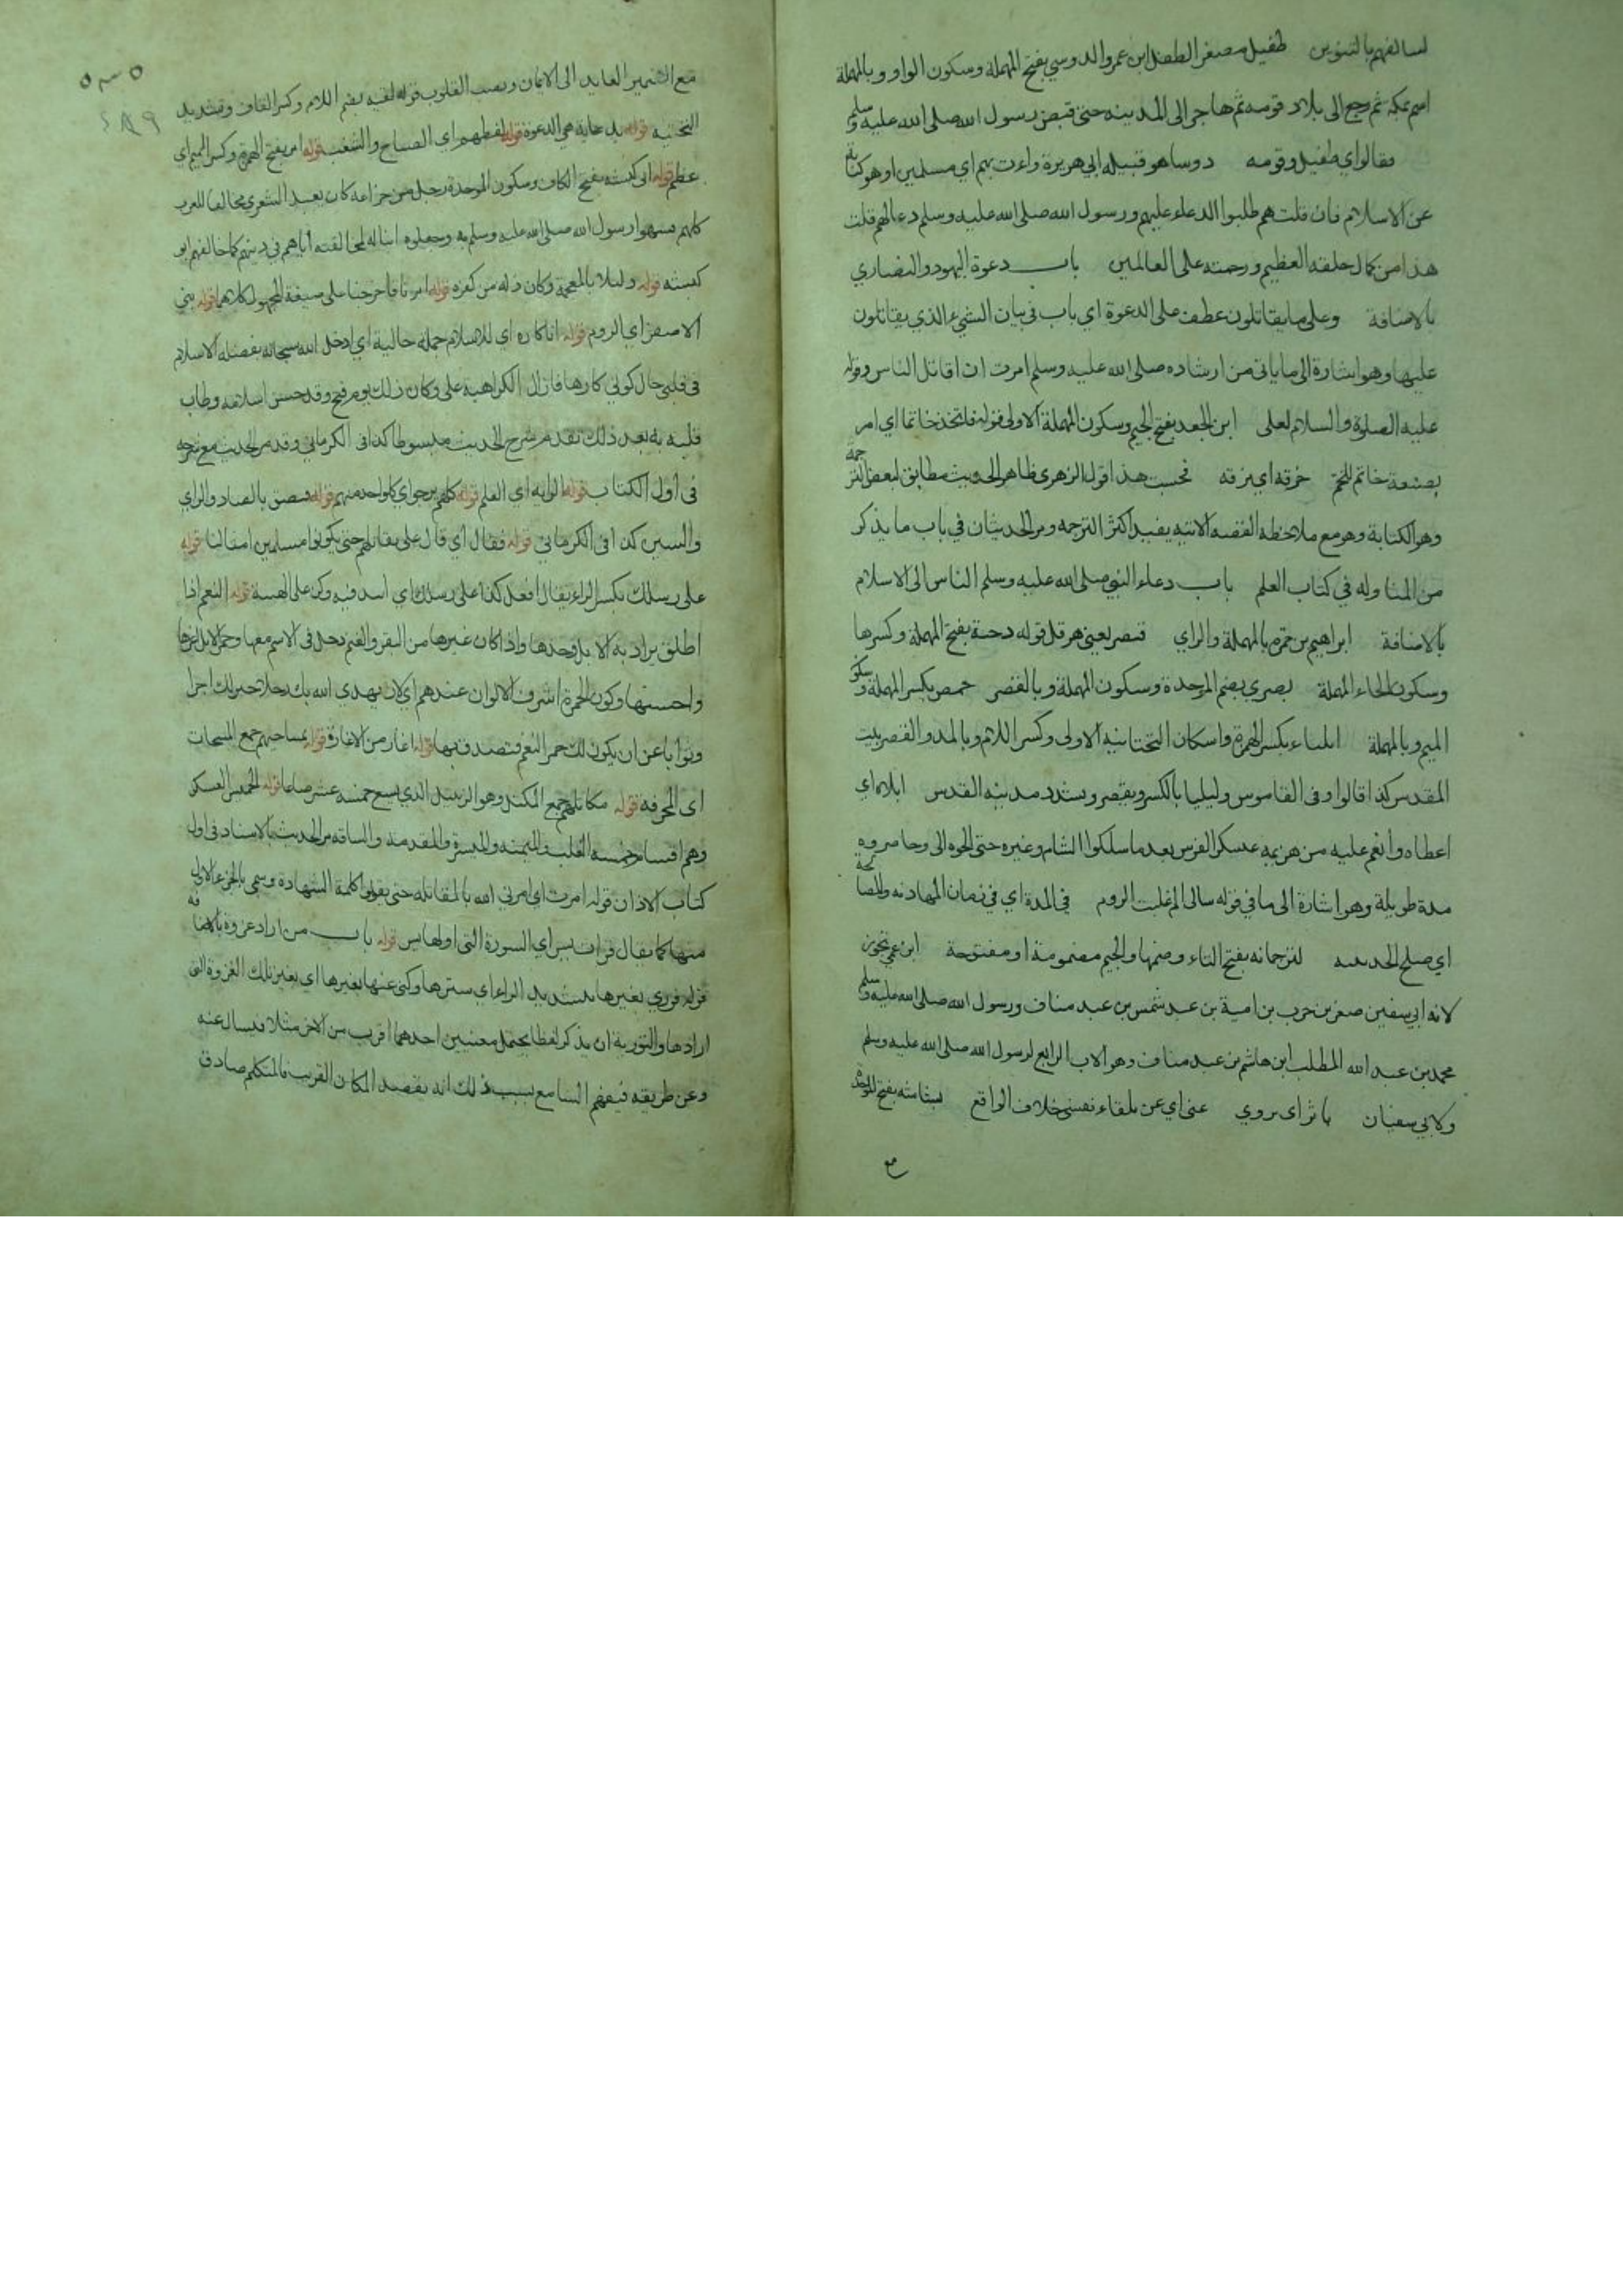 لتألفهم بالتنوين طفيل مصغر الطفل ابن عمرو الدوسي بفتح المهملة وسكون الواو وبالمهملة
اسم بمكة ثم رجع الى بلاد قومه ثم هاجر الى المدينه حتى قبض رسول الله صلى الله عليه وسلم
فقالوا اي طفيل وقومه دوسا هو قبيله ابي هريرة وائت بهم اي مسلمين او هو كناية
عن الاسلام فان قلت هم طلبوا الدعاء عليهم ورسول الله صلى الله عليه وسلم دعا لهم قلت
هذا من كمال خلقه العظيم ورحمته على العالمين باب دعوة اليهود والنصاري
بالاضافة وعلى ما يقاتلون عطف على الدعوة اي باب في بيان الشيء الذي يقاتلون
عليها وهو اشارة الى ما ياتي من ارشاده صلى الله عليه وسلم امرت ان اقاتل الناس وقوله
عليه الصلوة والسلام لعلى ابن الجعد بفتح الجيم وسكون المهملة الاولى قوله فاتخذ خاتما اي امر
بصنعة خاتم للختم خرقه اي مزقه فحسبت هذا قول الزهري ظاهر الحديث مطابق لبعض الترجمة
وهو الكتابة وهو مع ملاحظة القصه الاتيه يفيد اكثر الترجمه ومر الحديثان في باب ما يذكر
من المناوله في كتاب العلم باب دعاء النبي صلى الله عليه وسلم الناس الى الاسلام
بالاضافة ابراهيم بن حمزه بالمهملة والزاي قيصر يعني هرقل قوله دحية بفتح المهملة وكسرها
وسكون الحاء المهملة بصري بضم الموحدة وسكون المهملة وبالقصر حمص بكسر المهملة وسكون
الميم وبالمهملة ايلياء بكسر الهمزة واسكان التحتانيه الاولى وكسر اللام وبالمد والقصر بيت
المقدس كذا قالوا وفى القاموس وايليا بالكسر ويقصر ويشدد مدينه القدس ابلاه اي
اعطاه وانعم عليه من هزيمه عسكر الفرس بعد ما سلكوا الشام وغيره حتى الجوه الى وحاصروه
مدة طويلة وهو اشارة الى ما في قوله تعالى الم غلبت الروم في المدة اي في زمان المهادنه والمصالحة
اي صلح الحديبيه لترجمانه بفتح التاء وضمها والجيم مضمومة او مفتوحة ابن عمي تجوز
لانه ابي سفين صخر بن حرب بن امية بن عبد شمس بن عبد مناف ورسول الله صلى الله عليه وسلم
محمد بن عبد الله المطلب ابن هاشم بن عبد مناف وهو الاب الرابع لرسول الله صلى الله عليه وسلم
ولابي سفيان ياثر اي يروي عني اي عن تلقاء نفسي خلاف الواقع بشاشته بفتح الموحدة
مع
٢٨٩
مع الضمير العايد الى الايمان ونصب القلوب قوله لقيه بضم اللام وكسر القاف وتشديد
التحتيه قوله بدعاية هي الدعوة قوله لغطهم اي الصياح والشغب قوله امر بفتح الهمزة وكسر الميم اي
عظم قوله ابي كبشه بفتح الكاف وسكون الموحدة رجل من خزاعه كان يعبد الشعري مخالفا للعرب
كلهم شبهوا رسول الله صلى الله عليه وسلم به وجعلوه ابنا له لمخالفته اباهم في دينهم كما خالفهم ابو
كبشه قوله وليلا بالمعجمة وكان ذله من كفره قوله امرنا فاخرجنا على صيغة المجهول كلاهما قوله بني
الاصفر اي الروم قوله انا كاره اي للاسلام جملة حالية اي ادخل الله سبحانه بفضله الاسلام
في قلبي حال كوني كارها فازال الكراهية على وكان ذلك يوم فتح وقد حسن اسلامه وطاب
قلبه به بعد ذلك تقدم شرح الحديث مبسوطا كذا في الكرماني وقد مر الحديث مع شرحه
في اول الكتاب قوله الرايه اي العلم قوله كلهم يرجو اي كل واحد منهم قوله فبصق بالصاد والزاي
والسين كذا في الكرماني قوله فقال اي قال على نقاتلهم حتى يكونوا مسلمين امثالنا قوله
على رسلك بكسر الراء يقال افعل كذا على رسلك اي اتئد فيه وكن على الهينة قوله النعم اذا
اطلق يراد به الابل وحدها واذا كان غيرها من البقر والغنم دخل في الاسم معها وحمر الابل اعزها
واحسنها وكون الحمرة اشرف الالوان عندهم اي لان يهدي الله بك رجلا خير لك اجرا
وثوابا عن ان يكون لك حمر النعم فتصدق بها قوله اغار من الاغارة قوله بمساحيهم جمع المسحات
اي المجرفه قوله مكاتلهم جمع المكتل وهو الزنبيل الذي يسع خمسه عشر صاعا قوله الخميس العسكر
وهم اقسام خمسه القلب والميمنه والميسرة والمقدمه والساقه مر الحديث بالاسناد في اول
كتاب الاذان قوله امرت اي امرني الله بالمقاتله حتى يقولوا كلمة الشهادة وسمى بالجزء الاول
منها كما يقال قرات يس اي السورة التي اولها يس قوله باب من اراد غزوه بالاضافه
قوله فوري بغيرها بتشديد الراء اي سترها وكنى عنها بغيرها اي بغير تلك الغزوة التي
ارادها والتورية ان يذكر لفظا يحتمل معنيين احدهما اقرب من الاخر مثلا فيسال عنه
وعن طريقه فيفهم السامع بسبب ذلك انه يقصد المكان القريب فالمتكلم صادق